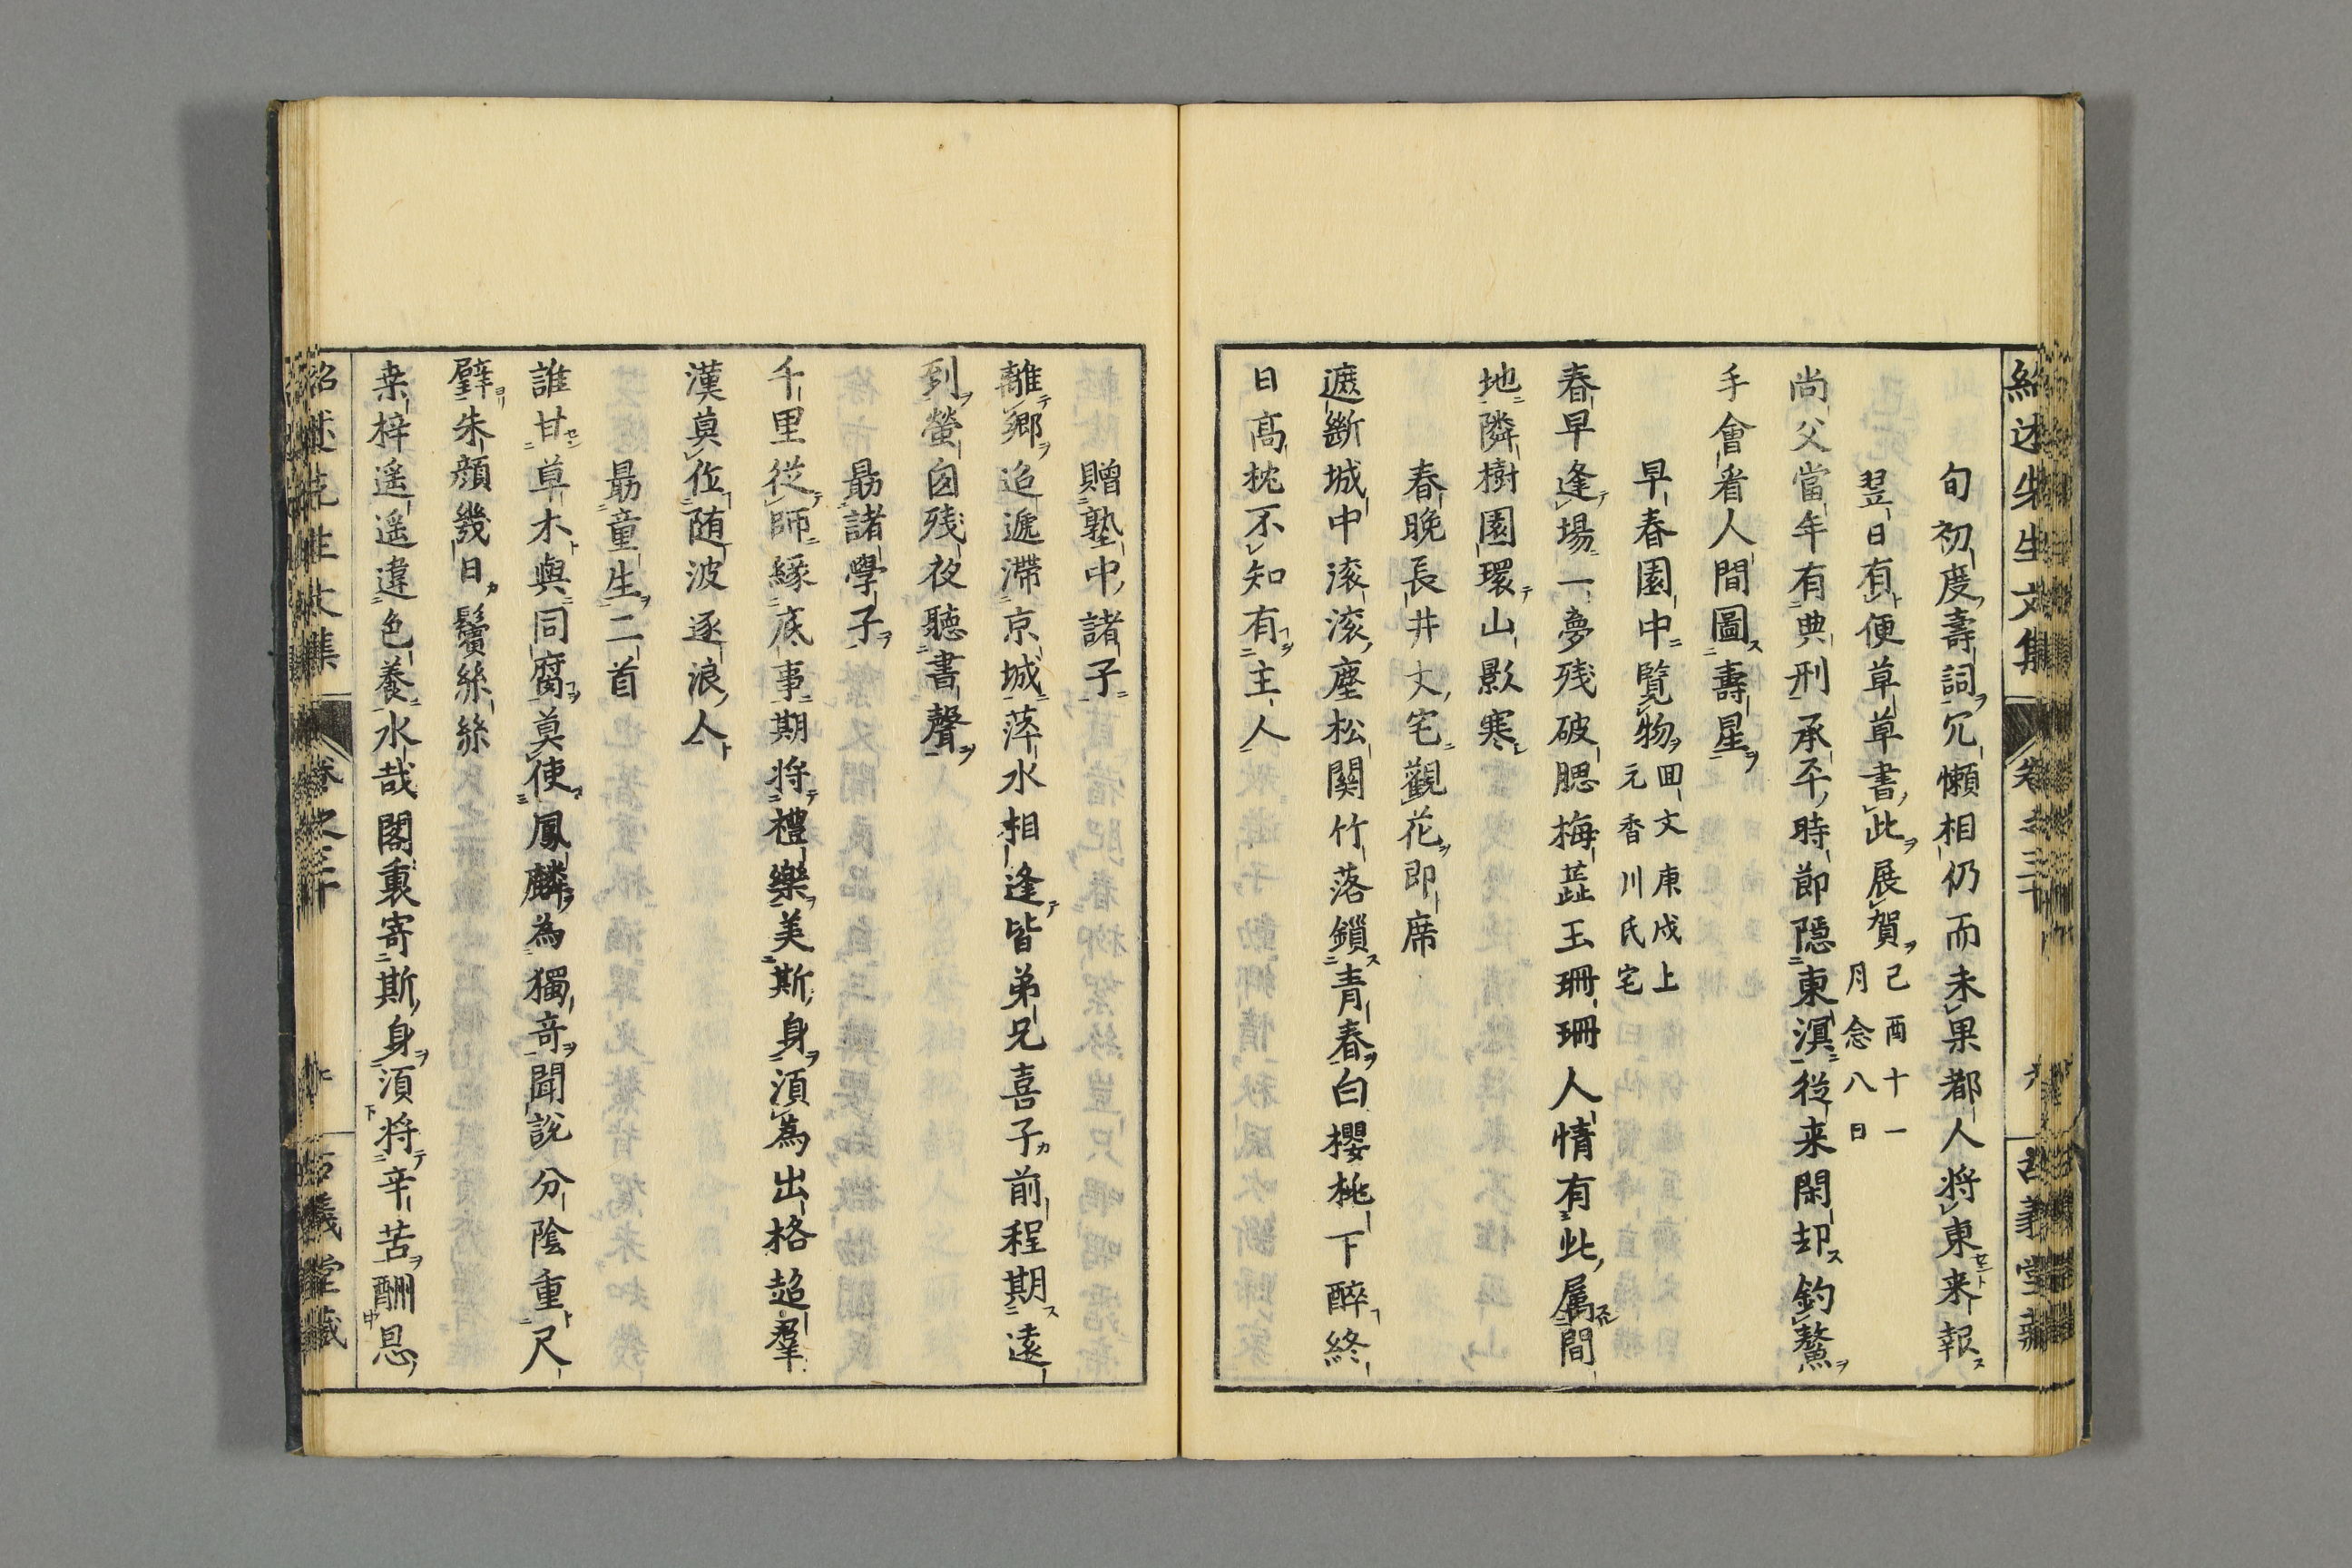 旬初度壽詞冗懶相仍而未果都人將東来報
翌日有便草草書此展賀己酉十一
月念八日
尚父當年有典刑承平時節隱東溟從来閑却釣鰲
手會看人間圖壽星
早春園中覽物回文庚戌上
元香川氏宅
春早逢場一夢残破腮梅蕋玉珊珊人情有此属間
地隣樹園環山影寒
春晩長井丈宅觀花即席
遮斷城中滚滚塵松関竹落鎖青春白櫻桃下醉終
日髙枕不知有主人
贈塾中諸子
離郷迢遞滯京城萍水相逢皆弟兄喜子前程期遠
到螢囪残夜聽書聲
朂諸學子
千里從師縁底事期将禮樂美斯身湏為出格超羣
漢莫作随波逐浪人
朂童生二首
誰甘草木與同腐莫使鳳麟為獨竒聞説分陰重尺
璧朱顔幾日鬢絲絲
桒梓遥遥違色養水哉閣裏寄斯身湏将辛苦酬恩
紹述先生文集
卷之三十
古義堂藏